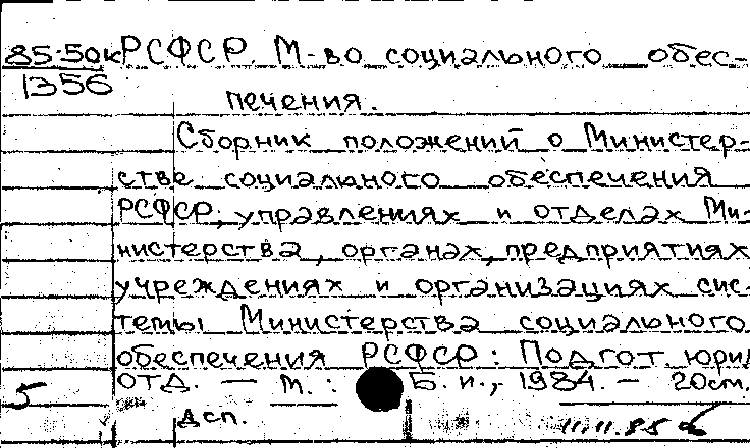 85-50к РСФСР М-во социального обес-
1356
печения.
Сборник положений о Министер-
стве социального обеспечения
РСФСР, управлениях и отделах Ми-
нистерства, органах, предприятиях
учреждениях и организациях сис-
темы Министерства социального
обеспечения РСФСР: Подгот. юрид
отд. — М. : Б. и., 1984. — 20см.
5
ДСП.
11.11.85